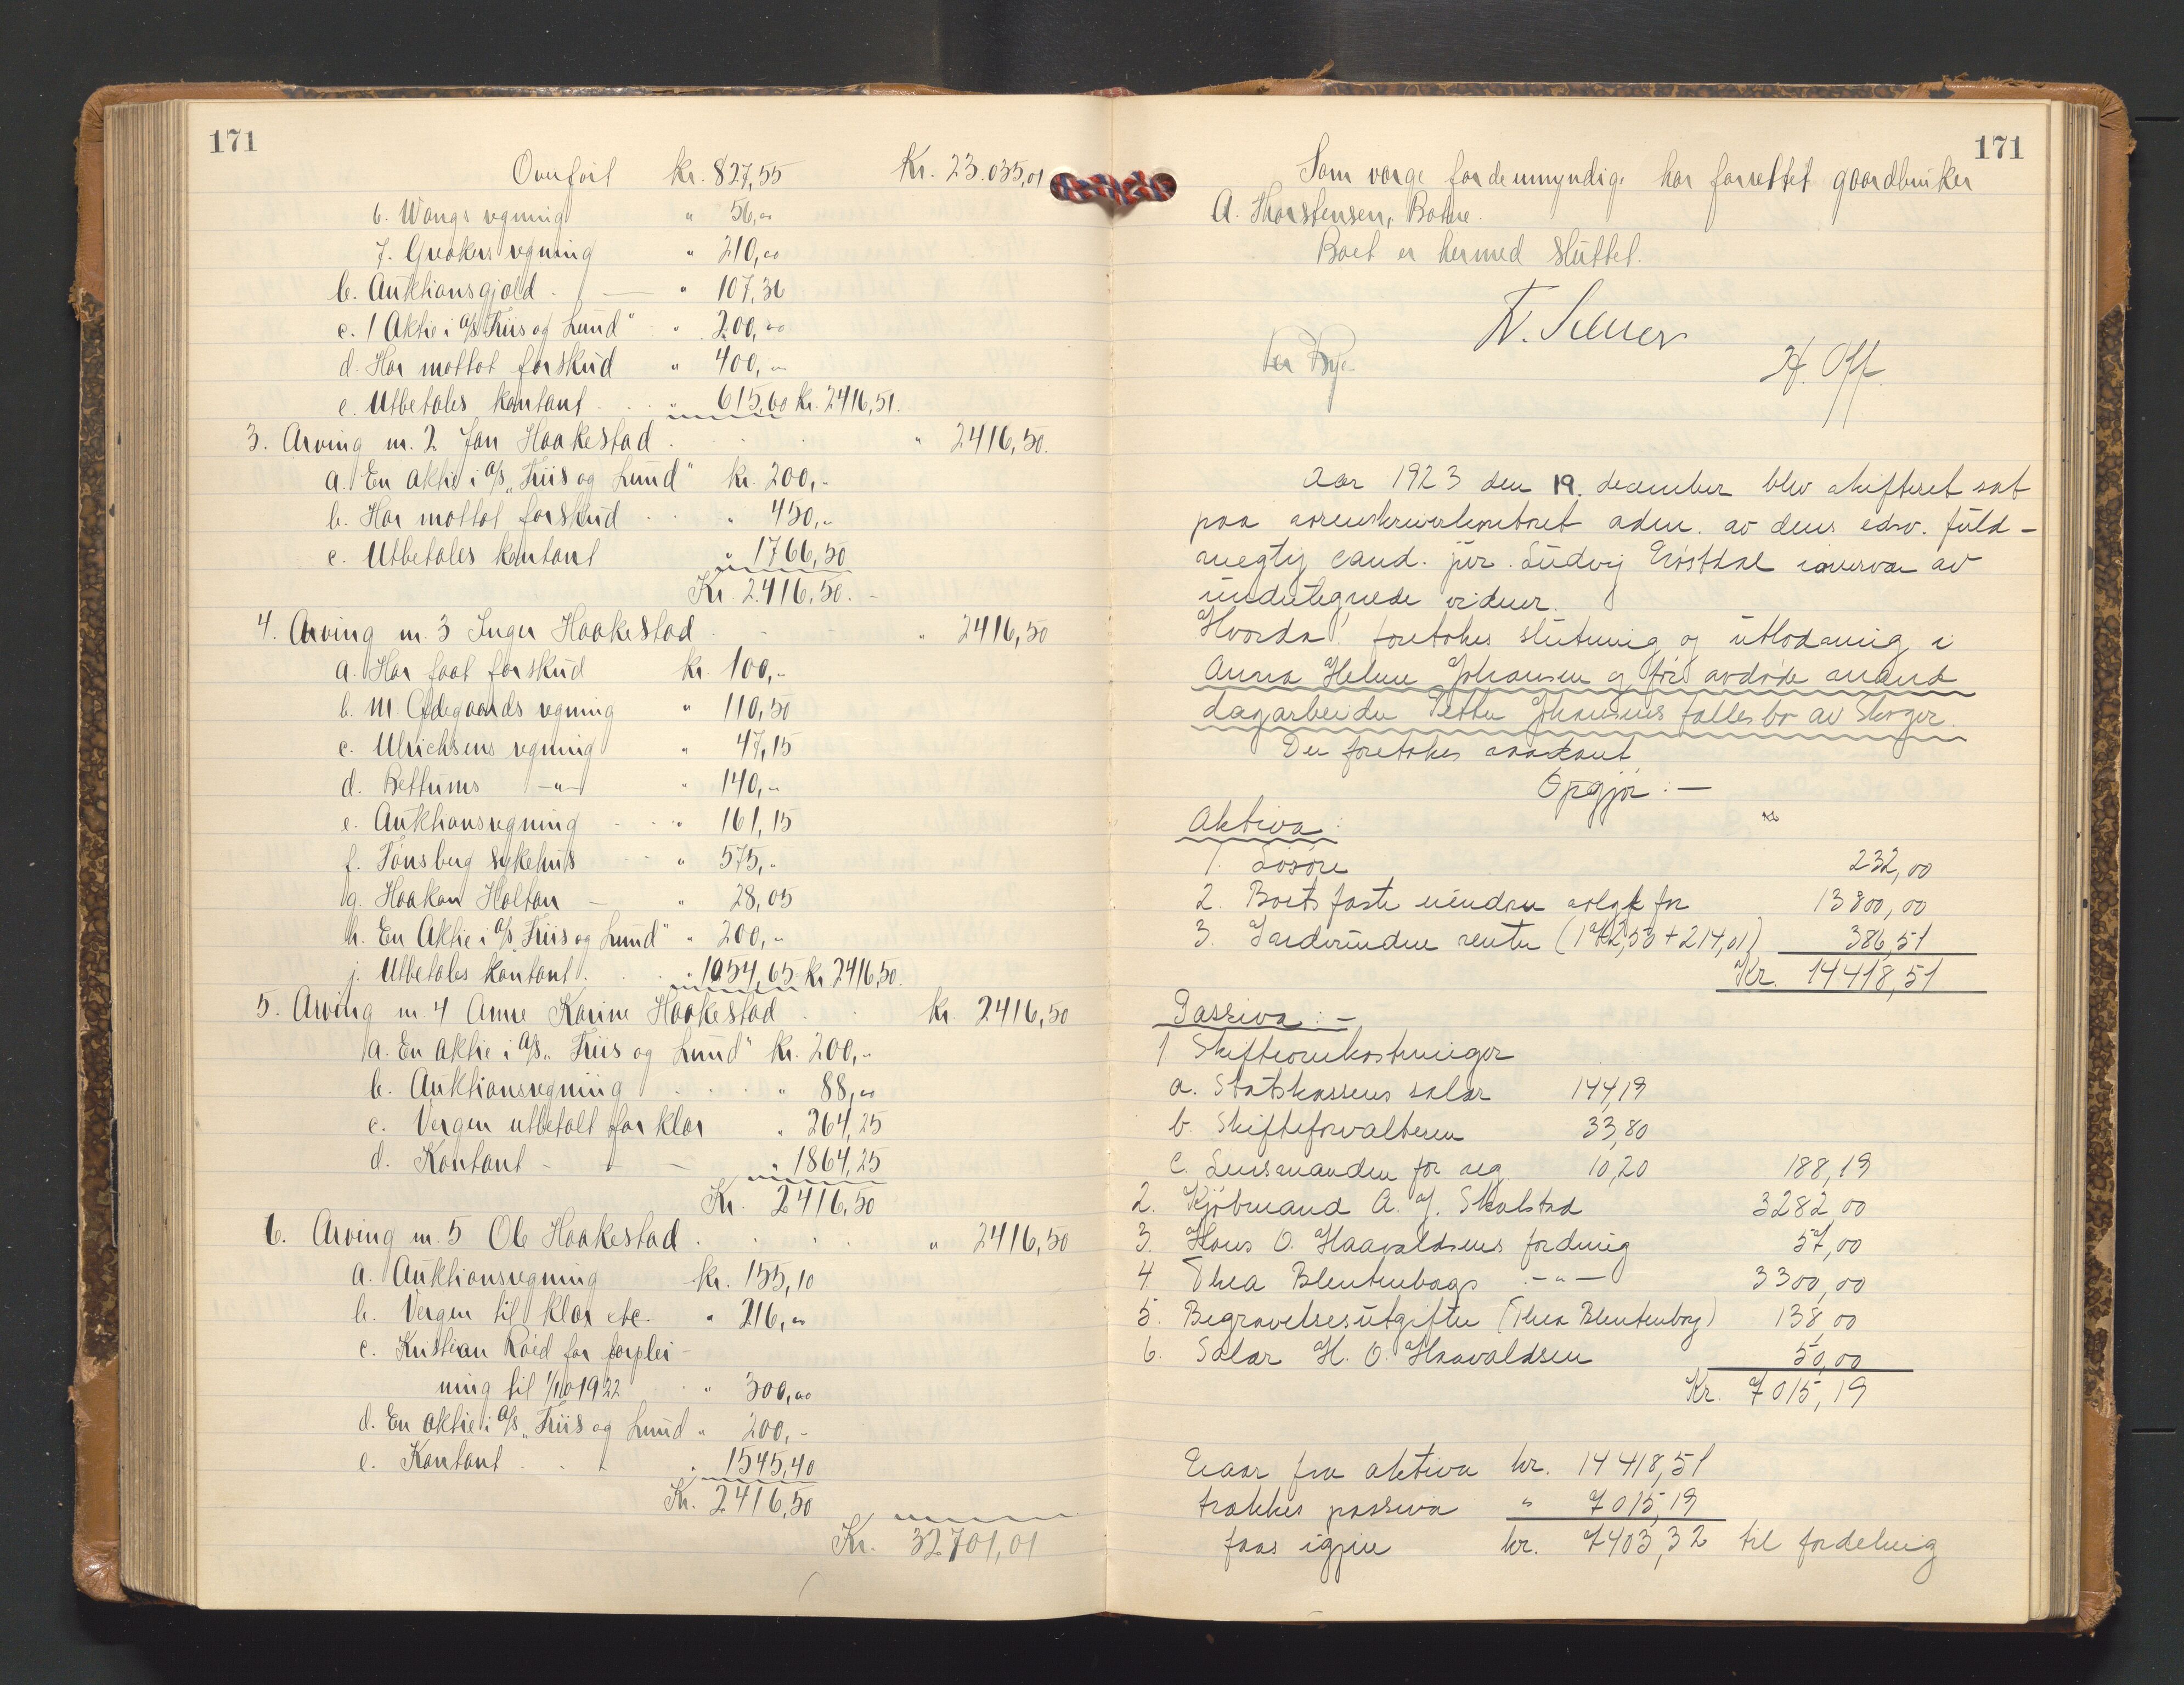 171
Overført kr. 827,55 Kr. 23.035,01
6. Wangs regning " 56,00
7. Gvakers regning " 210,00
b. Auktionsgjæld " 107,36
c. 1 Aktie i A/S "Friis og Lund" " 200,00
d. Har mottat forskud " 400,-
e. Utbetales kontant " 615,60 Kr. 2416,51.
3. Arving nr. 2 Jan Haakestad " 2416,50.
a. En aktie i A/S "Friis og Lund" kr. 200,-
b. Har mottat forskud " 450,-
c. Utbetales kontant " 1766,50
Kr. 2416,50.
4. Arving nr. 3 Inger Haakestad " 2416,50
a. Har faat forskud kr. 100,-
b. M. Ødegaards regning " 110,50
c. Ulrichsens regning " 47,15
d. Bettums -"- " 140,-
e. Auktionsregning " 161,15
f. Tønsberg sykehus " 575,-
g. Haakon Holtan " 28,05
h. En Aktie i A/S "Friis og Lund" " 200,-
j. Utbetales kontant " 1054,65 kr 2416,50.
5. Arving nr. 4 Anne Karine Haakestad kr. 2416,50
a. En aktie i A/S "Friis og Lund" kr. 200,-
b. Auktionsregning " 88,00
c. Vergen utbetalt for klær " 264,25
d. Kontant " 1864,25
Kr. 2416,50
6. Arving nr. 5 Ole Haakestad " 2416,50
a. Auktionsregning kr. 155,10
b. Vergen til klær etc. " 216,00
c. Kristian Røed for forplei-
ning til 1/10 1922 " 300,00
d. En aktie i A/S "Friis og Lund" " 200,-
e. Kontant " 1545,40
Kr. 2416,50
Kr. 32701,01
171
Som verge for de umyndige har forrettet gaardbruker
A. Thorstensen, Botne.
Boet er hermed sluttet.
H. Off.
Aar 1923 den 19. december blev skifteret sat
paa sorenskriverkontoret adm. av dens edsv. fuld-
megtig cand. jur. Ludvig Erøstdal i overvær av
undertegnede vidner.
Hvorda foretokes slutning og utlodning i
Anna Helene Johansen og før avdøde mand
dagarbeider Petter Johansens fællesbo av Skoger.
Der foretokes saadant
Opgjør:-
Aktiva: kr
1. Løsøre 232,00
2. Boets faste eiendom solgt for 13800,00
3. Indvundne renter (172,50 + 214,01) 386,51
Kr. 14418,51
Passiva:-
1 Skifteomkostninger
a. Statskassens salær 144,19
b. Skifteforvalteren 33,80
c. Lensmanden for reg. 10,20 188,19
2. Kjøbmand A. J. Skalstad 3282,00
3. Hans O. Haavaldsens fordring 57,00
4. Thea Blentenbags -"- 3300,00
5. Begravelsesutgifter (Thea Blentenbag) 138,00
6. Salær H. O. Haavaldsen 50,00
Kr. 7015,19
Naar fra aktiva kr. 14418,51
trækkes passiva " 7015,19
faas igjen kr. 7403,32 til fordeling